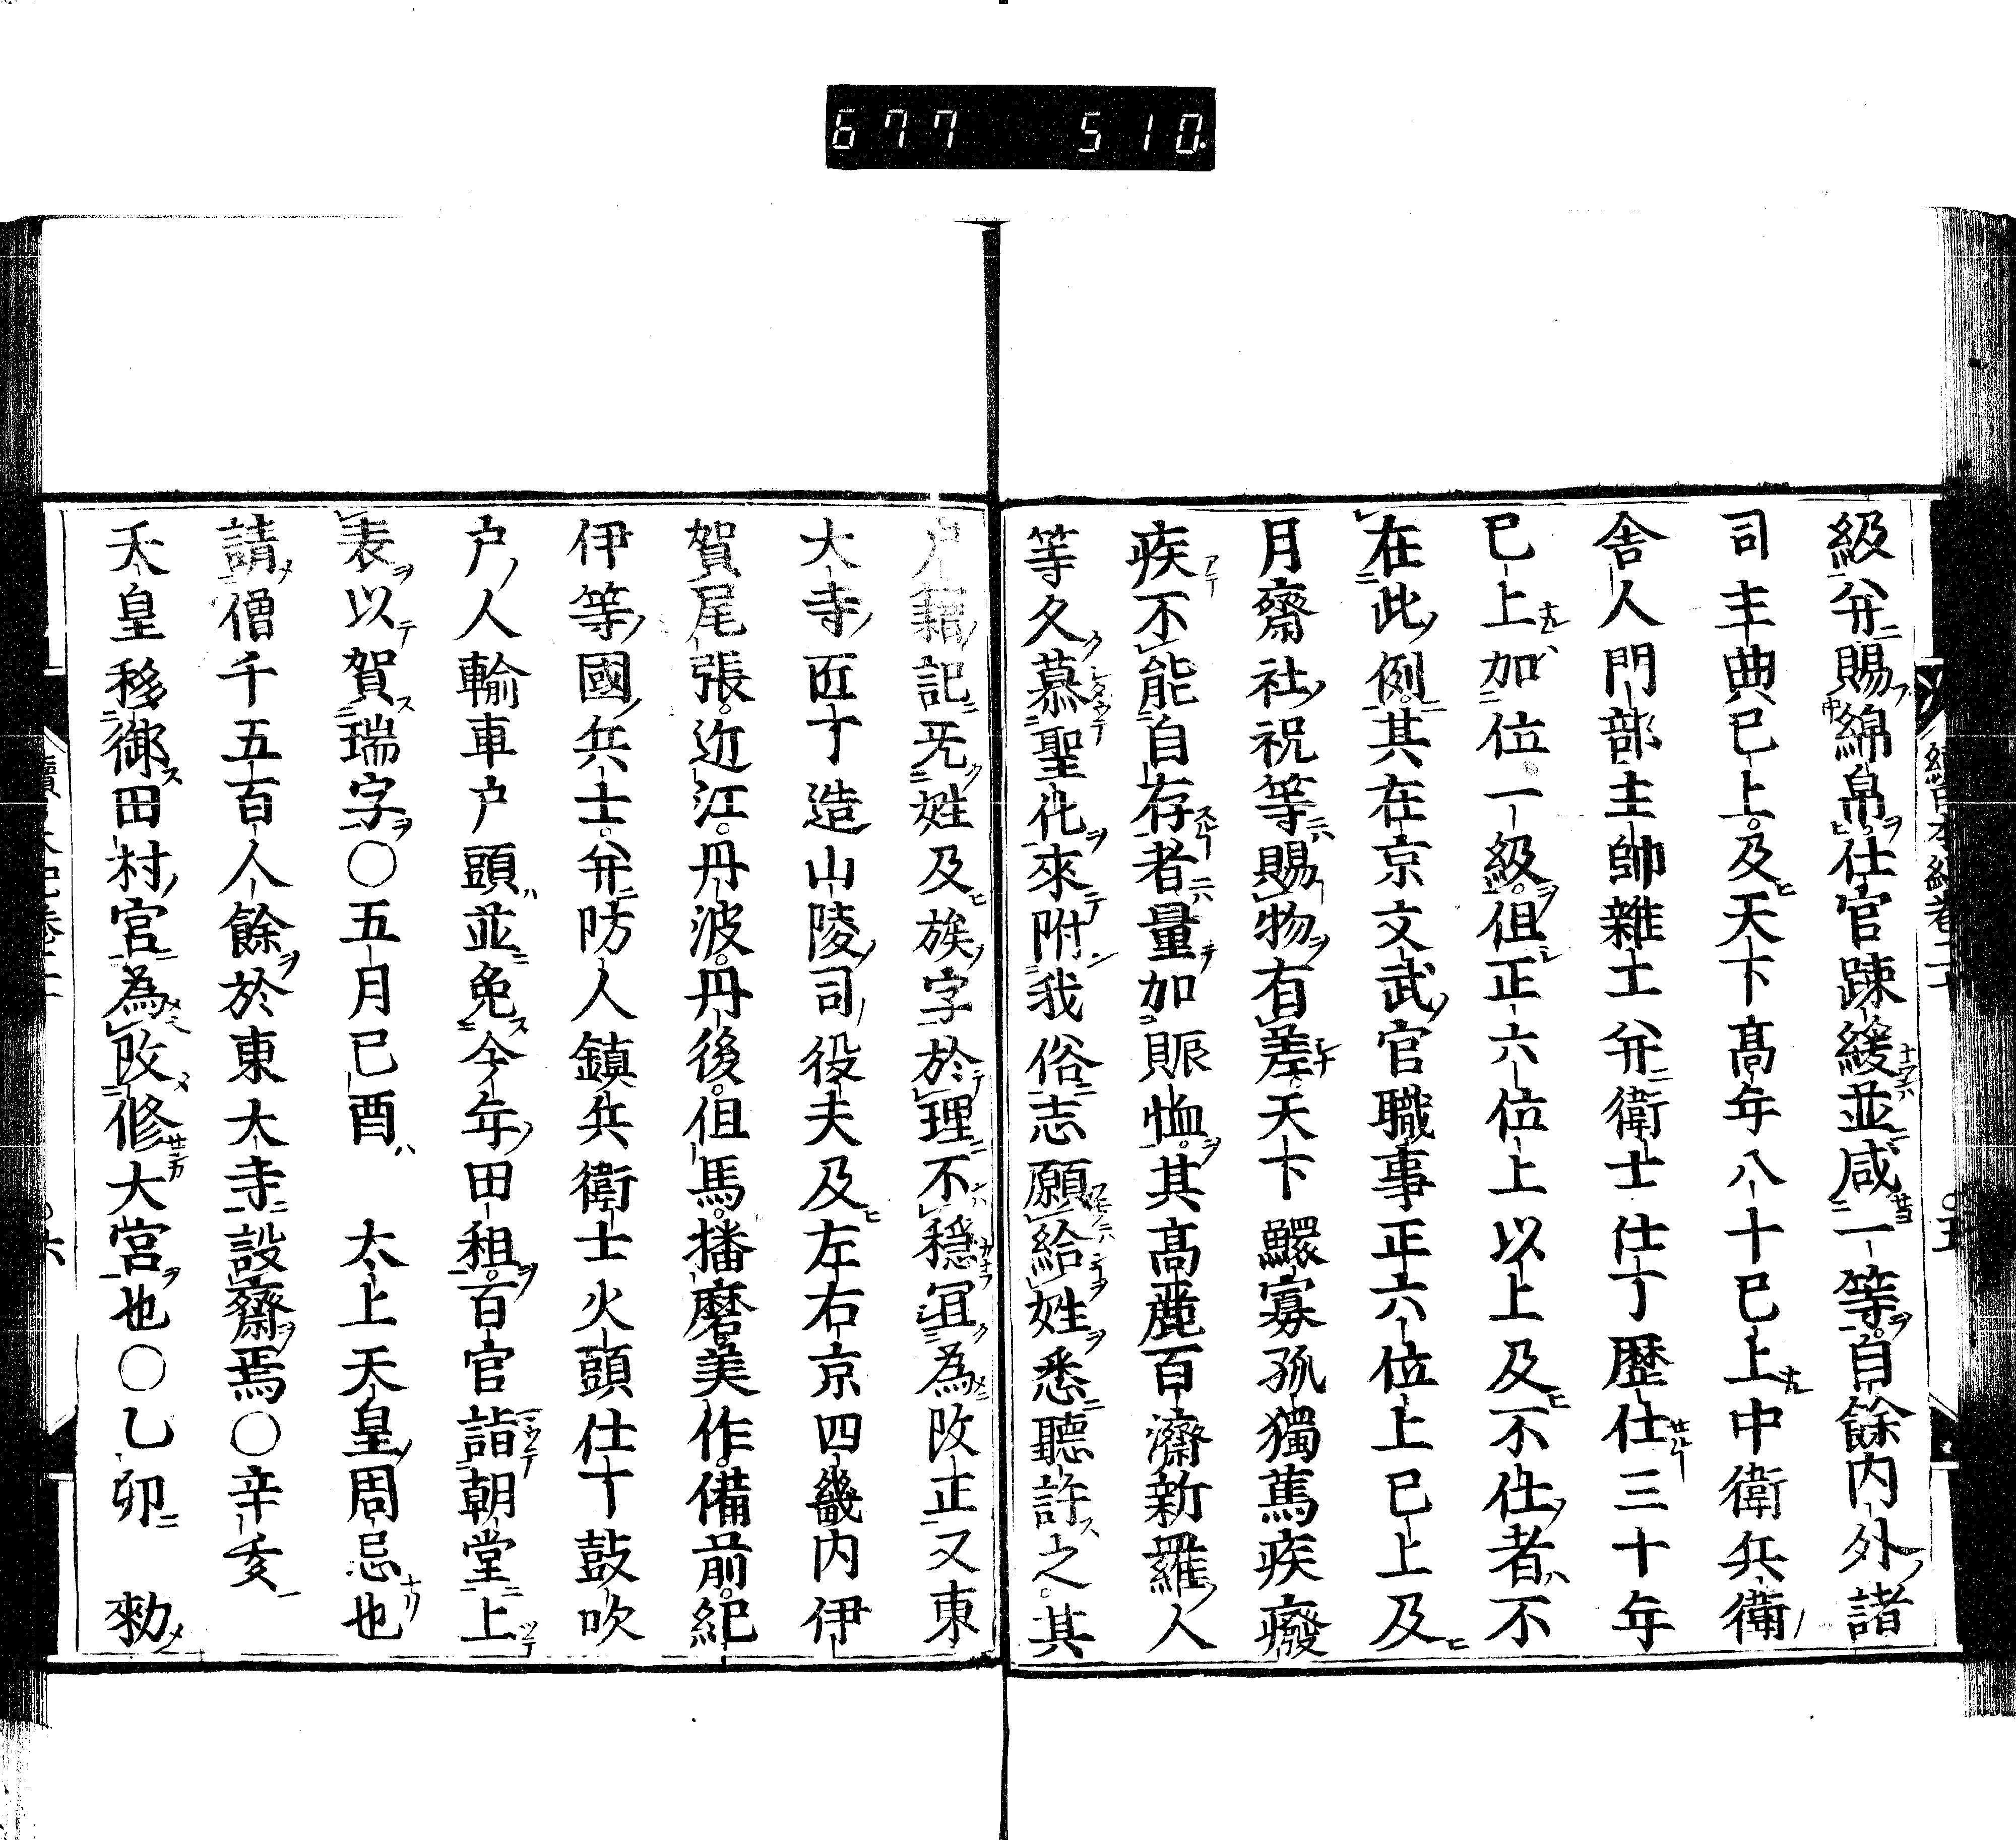 677 510.
級并賜綿帛仕官踈緩並咸一等自餘内外諸
司主典已上及天下髙年八十已上中衛兵衛
舎人門部主帥雜工并衛士仕丁歴仕三十年
已上加位一級但正六位上以上及不仕者不
在此例其在京文武官職事正六位上已上及
月齋社祝等賜物有差天下鰥寡孤獨萬疾癈
疾不能自存者量加賑恤其髙麗百濟新羅人
等久慕聖化來附我俗志願給姓悉聽許之其
戸籍記无姓及族字於理不穩冝為改正又東
大寺匠丁造山陵司役夫及左右京四畿内伊
賀尾張近江丹波丹後但馬播磨美作備前紀
伊等國兵士并防人鎮兵衛士火頭仕丁鼓吹
户人輸車户頭並免今年田租百官詣朝堂上
表以賀瑞字〇五月已酉 太上天皇周忌也
請僧千五百人餘於東大寺設齋焉〇辛亥
天皇移御田村宮為改修大宮也〇乙卯 勑